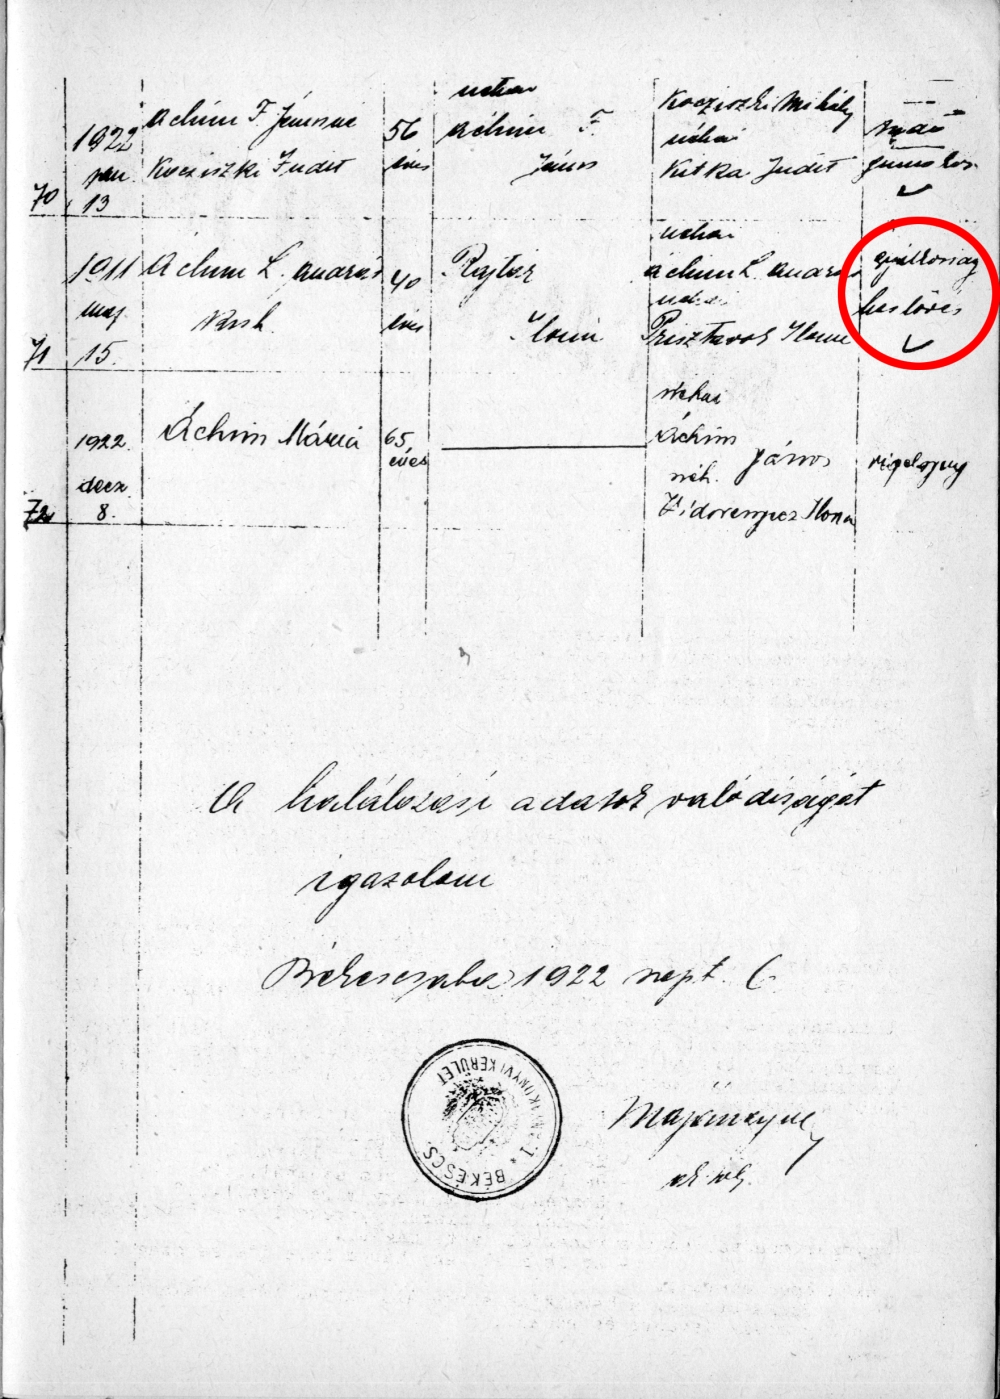 1922
jan.
13
70
Achim F. Jánosné
Kocziszki Judit
56
éves
néhai
Achim F.
János
Kocziszki Mihály
néhai
Kitka Judit
tüdő
gümőkór
1911
maj.
15.
71
Áchim L. András
40
éves
Rajtár
Ilona
néhai
Áchim L. András
néhai
Prisztavok Ilona
gyilkosság
haslövés
1922.
decz.
8.
72
Áchim Mária
65
éves
néhai
Áchim
János
néh.
Zsidorenyecz Ilona
végelgyng
A halálozási adatok valódiságát
igazolom
Békéscsaba 1922 szept. 6.
BÉKÉSCS. * I. ANYAKÖNYVI KERÜLET